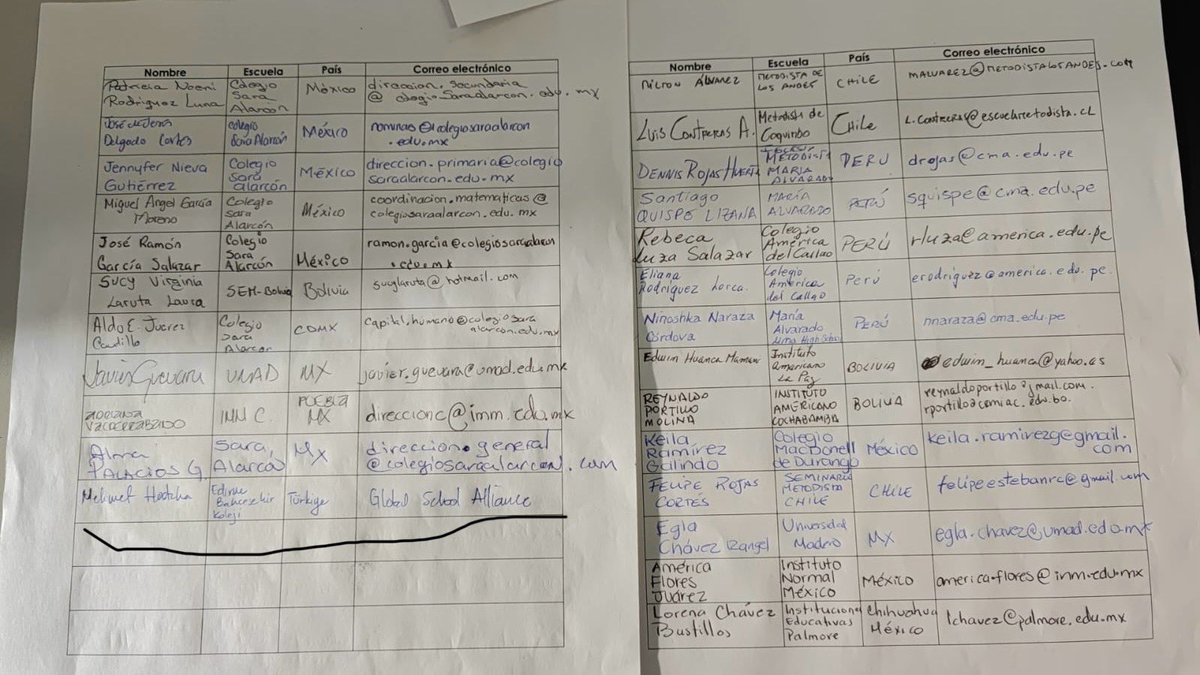 Nombre Escuela País Correo electrónico
Patricia Noemi Colegio México direccion.secundaria
Rodriguez Luna Sara @colegiosaraalarcon.edu.mx
Alarcón
José de Jesús colegio México nominas@colegiosaraalarcon
Delgado Cortes Sara Alarcón .edu.mx
Jennyfer Nieva Colegio México direccion.primaria@colegio
Gutiérrez Sara saraalarcon.edu.mx
alarcón
Miguel Angel García Colegio México coordinacion.matematicas@
Moreno Sara colegiosaraalarcon.edu.mx
Alarcón
José Ramón Colegio México ramon.garcia@colegiosaraalarcon
García Salazar Sara .edu.mx
Alarcón
Sucy Virginia SEM-Bolivia Bolivia sucylaruta@hotmail.com
Laruta Laura
Aldo E. Juarez Colegio CDMX capital.humano@colegiosara
Caudillo Sara alarcon.edu.mx
Alarcon
Javier Guevara UMAD MX javier.guevara@umad.edu.mx
ADRIANA INM C. PUEBLA direccionc@inm.edu.mx
VALDERRABADO MX
Alma Sara, MX direccion.general
PALACIOS G. Alarcón @colegiosaraalarcon.com
Mehmet Edirne Türkiye Global School Alliance
Bahçeşehir
Koleji
Nombre Escuela País Correo electrónico
MILTON ÁLVAREZ METODISTA DE CHILE MALVAREZ@METODISTALOSANDES.COM
LOS ANDES
LUIS CONTRERAS A. Metodista de Chile L.CONTRERAS@escuelametodista.CL
Coquimbo
DENNIS ROJAS HUERTA METODISTA PERU drojas@cma.edu.pe
MARIA
ALVARADO
Santiago MARÍA PERÚ squispe@cma.edu.pe
QUISPE LIZANA ALVARADO
Rebeca Colegio PERÚ rluza@america.edu.pe
Luza Salazar América
del Callao
Eliana Colegio Perú erodriguez@america.edu.pe.
Rodríguez Lorca. America
del Callao
Ninoshka Naraza María PERÚ nnaraza@cma.edu.pe
Córdova Alvarado
Lima High School
Edwin Huanca Mamani Instituto BOLIVIA edwin_huanca@yahoo.es
Americano
La Paz
REYNALDO INSTITUTO BOLIVIA reynaldoportillo@gmail.com.
PORTILLO AMÉRICANO rportillo@comiac.edu.bo.
MOLINA COCHABAMBA
Keila Colegio México keila.ramirezg@gmail.
Ramirez MacDonell com
Galindo de Durango
FELIPE ROJAS SEMINARIO CHILE felipeestebanrc@gmail.com
CORTÉS METODISTA
CHILE
Egla Universidad MX egla.chavez@umad.edu.mx
Chávez Rangel Madero
América Instituto México america.flores@inm.edu.mx
Flores Normal
Juárez México
Lorena Chávez Instituciones Chihuahua lchavez@palmore.edu.mx
Bustillos Educativas México
Palmore